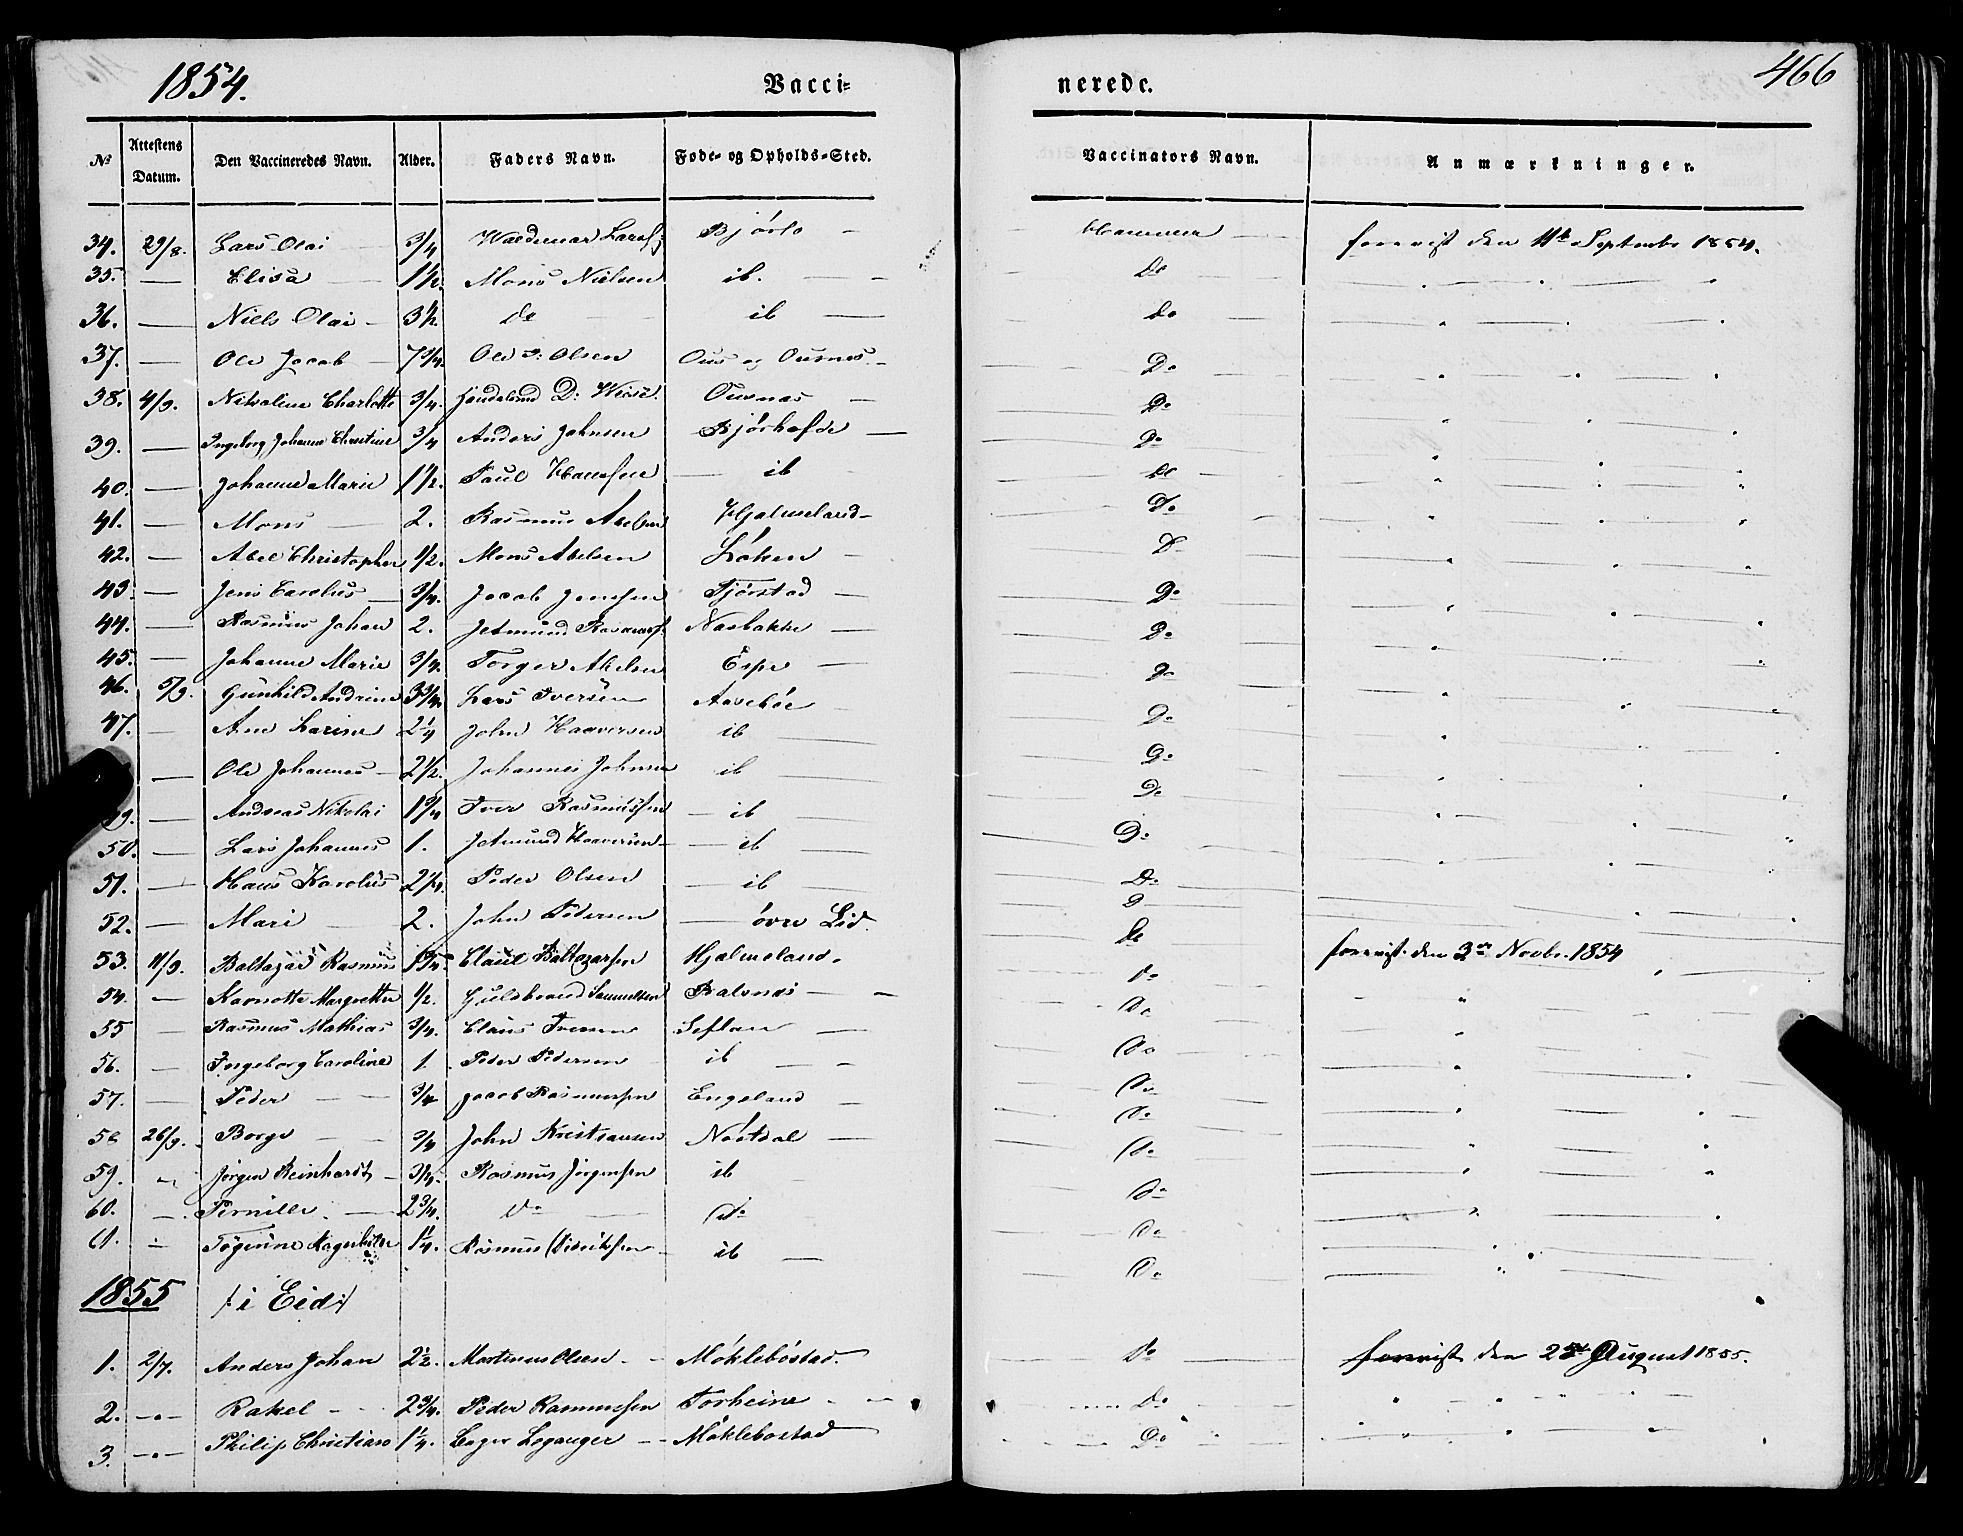 1854.
Vacci=
nerede.
466
No Attestens Datum. Den Vaccineredes Navn. Alder. Faders Navn. Føde- og Opholds-Sted. Vaccinators Navn. Anmærkninger.
34. 29/8. Lars Olai 3/4 Waldemar Bjørlo Hammer forevist den 11te September 1854.
35. — Elisa 1 1/2. Mons Nielsen ib. Do
36. — Niels Olai 3 1/2 do ib do
37. — Ole Jacob 7 3/4. Ole Olsen Ous og Ousnes Do
38. 4/9. Nikoline Charlotte 3/4. D: Ousnæs Do
39. — Ingeborg Johanne Christine 3/4 Anders Johnsen Do
40. — Johanne Marie 1 1/2. Paul Hansen ib do
41. — Mons 2. Rasmus Abelsen Hjelmeland Do
42. — Abel Christopher 1/2. Mons Abelsen Løken D
43. — Jens Carolus 3/4. Jacob Jensen Fjørstad Do
44. — Rasmus Johan 2. Jetmund Nosbakke Do
45. — Johanne Marie 3/4. Torger Abelsen Espe Do
46. 5/9. Gunhild Andrine 3 3/4. Lars Iversen Aasebøe Do
47. — Ane Larine 2 1/4 John Haaversen ib Do
— Ole Johannes 2 1/2. Johannes Johnsen ib De
9. — Andreas Nikolai 1 3/4 Iver Rasmussen ib Do
50. — Lars Johannes 1. Jetmund Haaversen ib Do
51. — Hans Karolus 2 1/4. Peder Olsen ib D
52. — Mari 2. John Pedersen øvre Lid. do
53. 11/9. Baltazar Rasmus 1 3/4. Claus Baltazarsen Hjelmeland. do forevist den 3die Novbr. 1854
54. — Margrethe 1/2. Guldbrand Samuelsen Do
55 — Rasmus Mathias 3/4. Claus Iversen Seftan Do
56. — Ingeborg Caroline 1. Peder Pedersen ib Do
57. — Peder 3/4 Jacob Rasmussen Engeland Do
58 26/9. Børge 3/4 John Kristiansen Nøstdal Do
59. " Jørgen Reinhardt 3/4. Rasmus Jørgensen ib Do
60. — Pernille 2 3/4. do do Do
61. — 1 1/4. Rasmus Didriksen ib Do
1855 /: i Eid :/
1. 2/7. Anders Johan 2 1/2. Martinus Olsen Møklebøstad. do forevist den 25de August 1855.
2. — " — Rakel 2 3/4. Peder Rasmussen Torheim Do
3. — " — Philip Christian 1 1/4. Møklebøstad Do